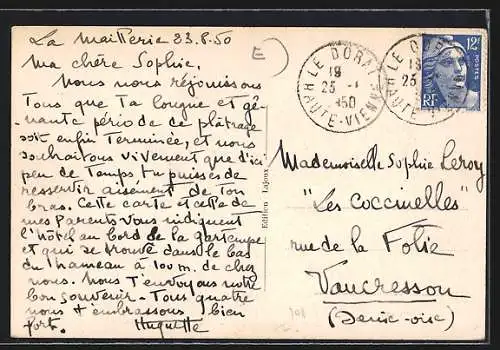 La Maitterie 23.8.50
Ma chère Sophie,
Nous nous réjouissons
Tous que Ta longue et gê-
nante période de plâtrage
soit enfin Terminée, et nous
souhaitons vivement que d'ici
peu de Temps, Tu puisses de
resservir aisément de Ton
bras. Cette carte et celle de
mes Parents vous indiquent
l'hôtel au bord de la gartempe
et qui se trouve dans le bas
du hameau à 100 m. de chez
nous. Nous T'envoyons notre
bon souvenir - Tous quatre
nous t'embrassons bien
fort. Huguette
E
Edition Lajoux
LE DORAT
19
23 - 8
1950
HAUTE-VIENNE
LE DORAT
19
23
HAUTE-VIENNE
12F
POSTES
RF
Mademoiselle Sophie Leroy
"Les Coccinelles"
rue de la Folie
Vaucresson
(Seine-oise)